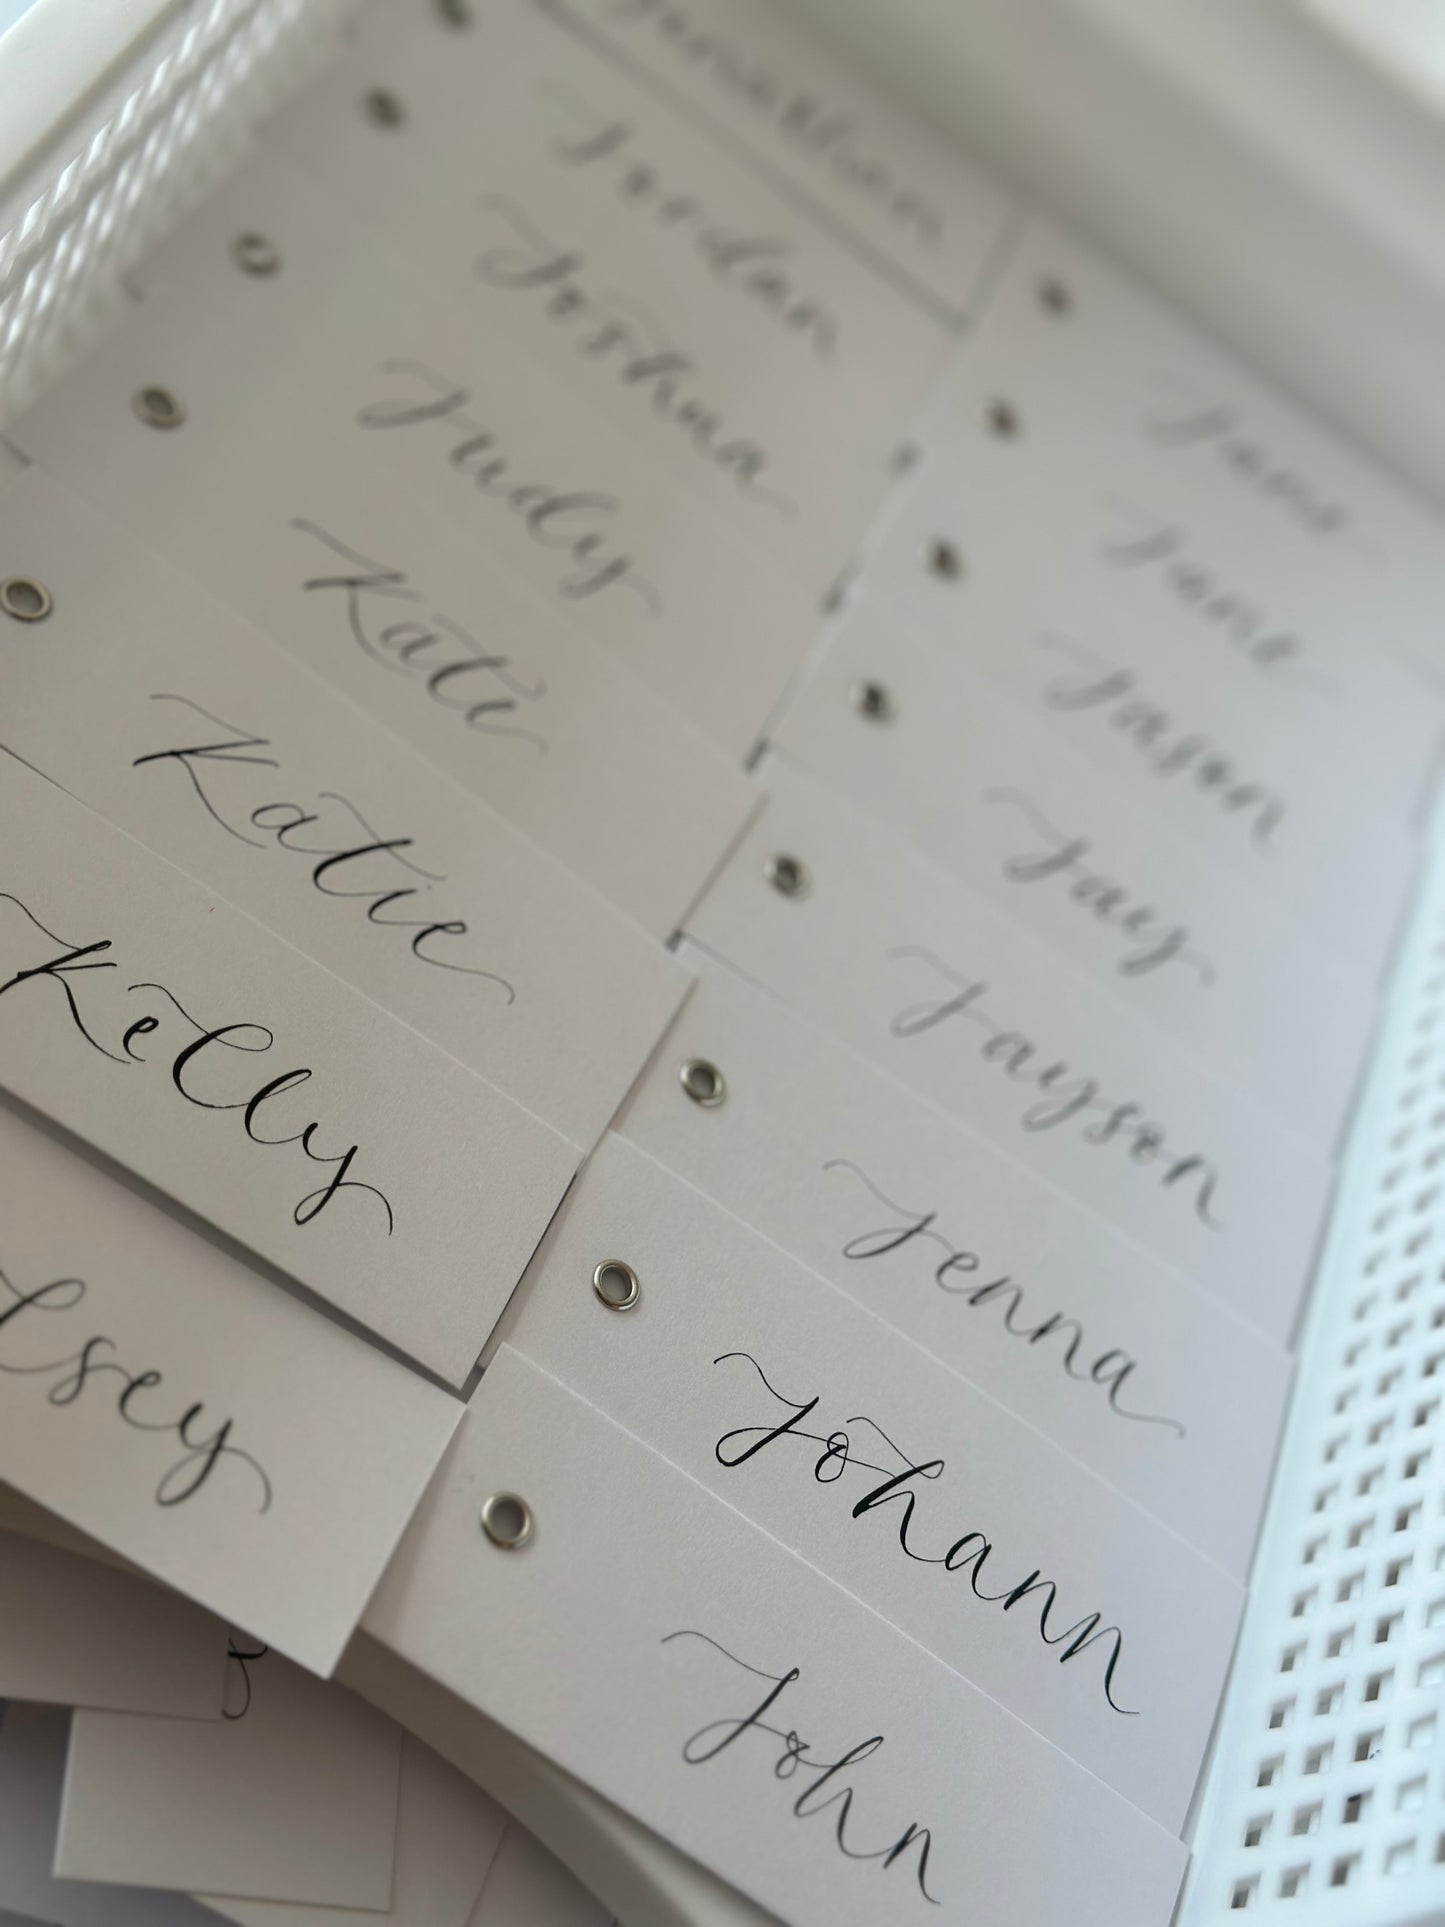 Jonathan
Jordan
Joshua
Judy
Kate
Katie
Kelly
lsey
Jane
Jane
Jason
Jay
Jayson
Jenna
Johann
John